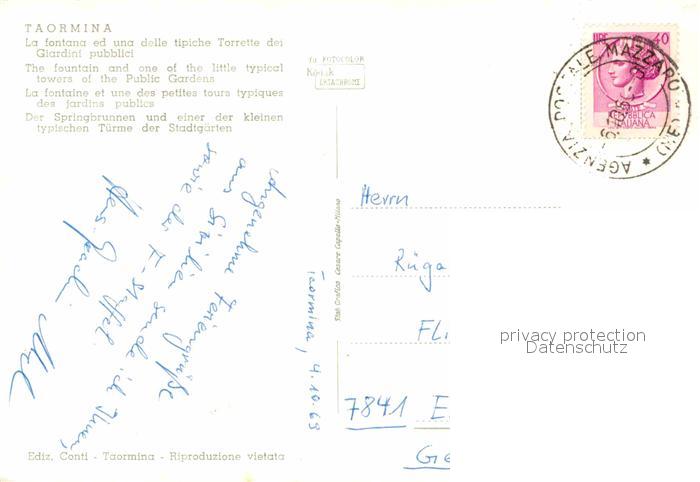 TAORMINA
La fontana ed una delle tipiche Torrette dei
Giardini pubblici
The fountain and one of the little typical
towers of the Public Gardens
La fontaine et une des petites tours typiques
des jardins publics
Der Springbrunnen und einer der kleinen
typischen Türme der Stadtgärten
da FOTOCOLOR
Kodak
EKTACHROME
LIRE 40
REPUBBLICA
ITALIANA
AGENZIA POSTALE MAZZARO (ME)
Angenehme Feriengrüße
aus Sizilien sende ich Ihnen,
sowie der F-Staffel
Taormina, 4.10.69
Stab. Grafico Cesare Capello - Milano
Herrn
Rüga
FLI
7841 E
Ge
privacy protection
Datenschutz
Ediz. Conti - Taormina - Riproduzione vietata